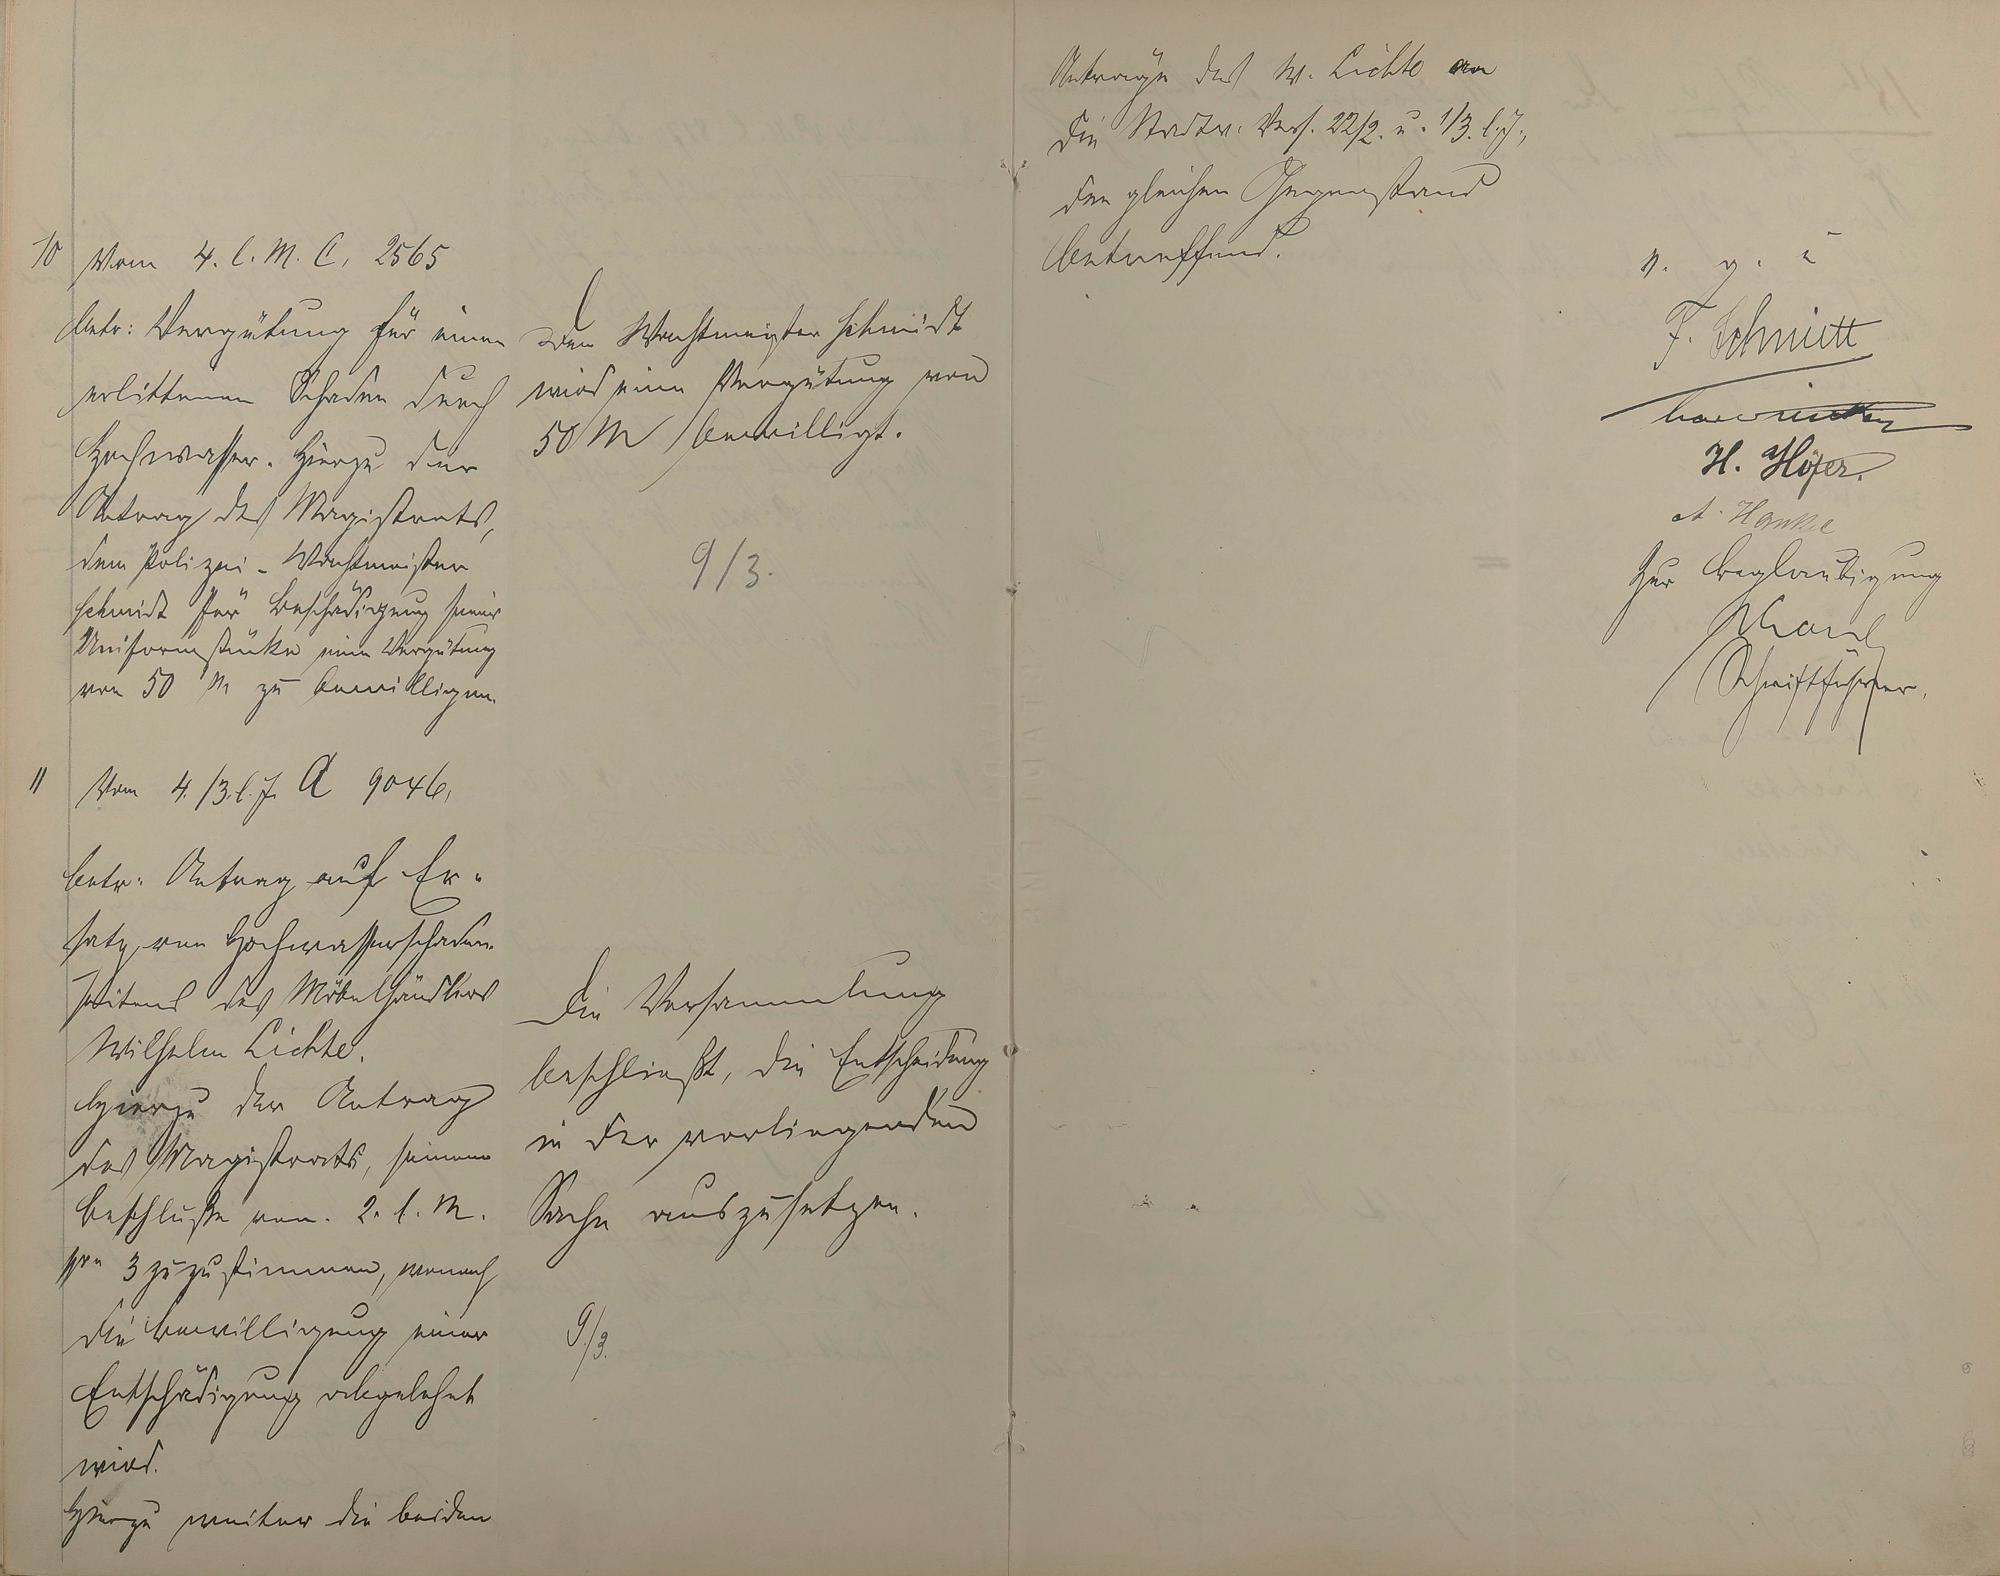 10 Vom 4. l. M. C. 2565
betr: Vergütung für einen
erlittenen Schaden durch
Hochwasser. Hierzu der
Antrag des Magistrats,
dem Polizei-Wachtmeister
Schmidt für Beschädigung seiner
Uniformstücke eine Vergütung
von 50 M zu bewilligen.
Dem Wachtmeister Schmidt
wird eine Vergütung von
50 M bewilligt.
9/3.
11 Vom 4./3. l. J. A 9046,
betr. Antrag auf Er-
satz von Hochwasserschaden
seitens des Möbelhändlers
Wilhelm Lichte.
Hierzu der Antrag
des Magistrats, seinem
Beschlusse vom 2. l. M.
3 zuzustimmen, wonach
die Bewilligung einer
Entschädigung abgelehnt
wird.
Hierzu weiter die beiden
Die Versammlung
beschließt, die Entscheidung
in der vorliegenden
Sache auszusetzen.
9./3.
Anträge des W. Lichte an
die Stadtv. Vers. 22/2. u. 1/3. l. J.,
den gleichen Gegenstand
betreffend.
v. g. u
F. Schmitt
H. Höfer.
A. Hanke
Zur Beglaubigung
Schriftführer.